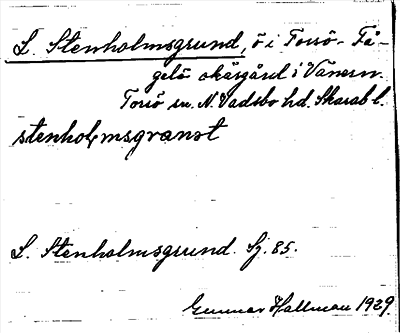 L. Stenholmsgrund, ö i Torsö- Få-
gelö skärgård i Vänern.
Torsö sn. N. Vadsbo hd. Skarab. l.
stenholmsgranst
L. Stenholmsgrund. Sj. 85.
Gunnar Hallman 1929.